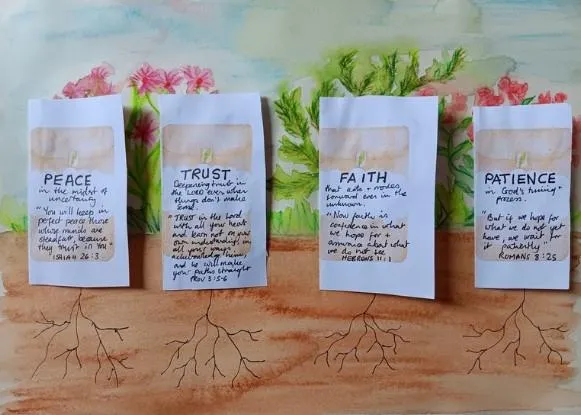 PEACE
in the midst of
uncertainty
"You will keep in
perfect peace those
whose minds are
steadfast, because
they trust in you"
ISAIAH 26:3
TRUST
Deepening trust in
the LORD even when
things don't make
sense.
"TRUST in the Lord
with all your heart
and lean not on your
own understanding; in
all your ways
acknowledge Him,
and he will make
your paths straight
PROV 3:5-6
FAITH
that acts + moves
forward even in the
unknown.
"Now faith is
confidence in what
we hope for +
assurance about what
we do not see
HEBREWS 11:1
PATIENCE
in God's timing +
process.
"But if we hope for
what we do not yet
have, we wait for
it patiently."
ROMANS 8:25